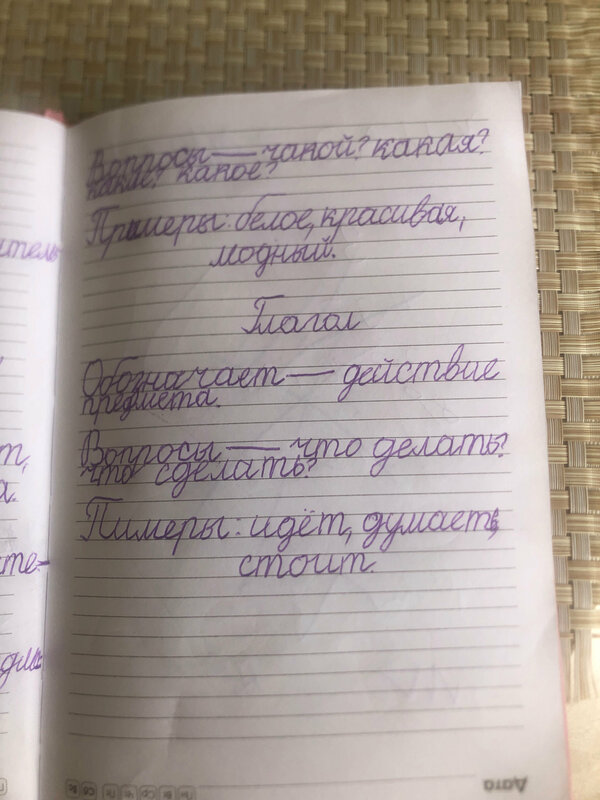 Вопросы — чакой? какая?
какие? какое?
Примеры: белое, красивая,
модный.
Глагол
Обозначает — действие
предмета.
Вопросы — что делать?
что сделать?
Пимеры: идёт, думаеть,
стоит
Дата
Пн Вт Ср Чт Пт Сб Вс